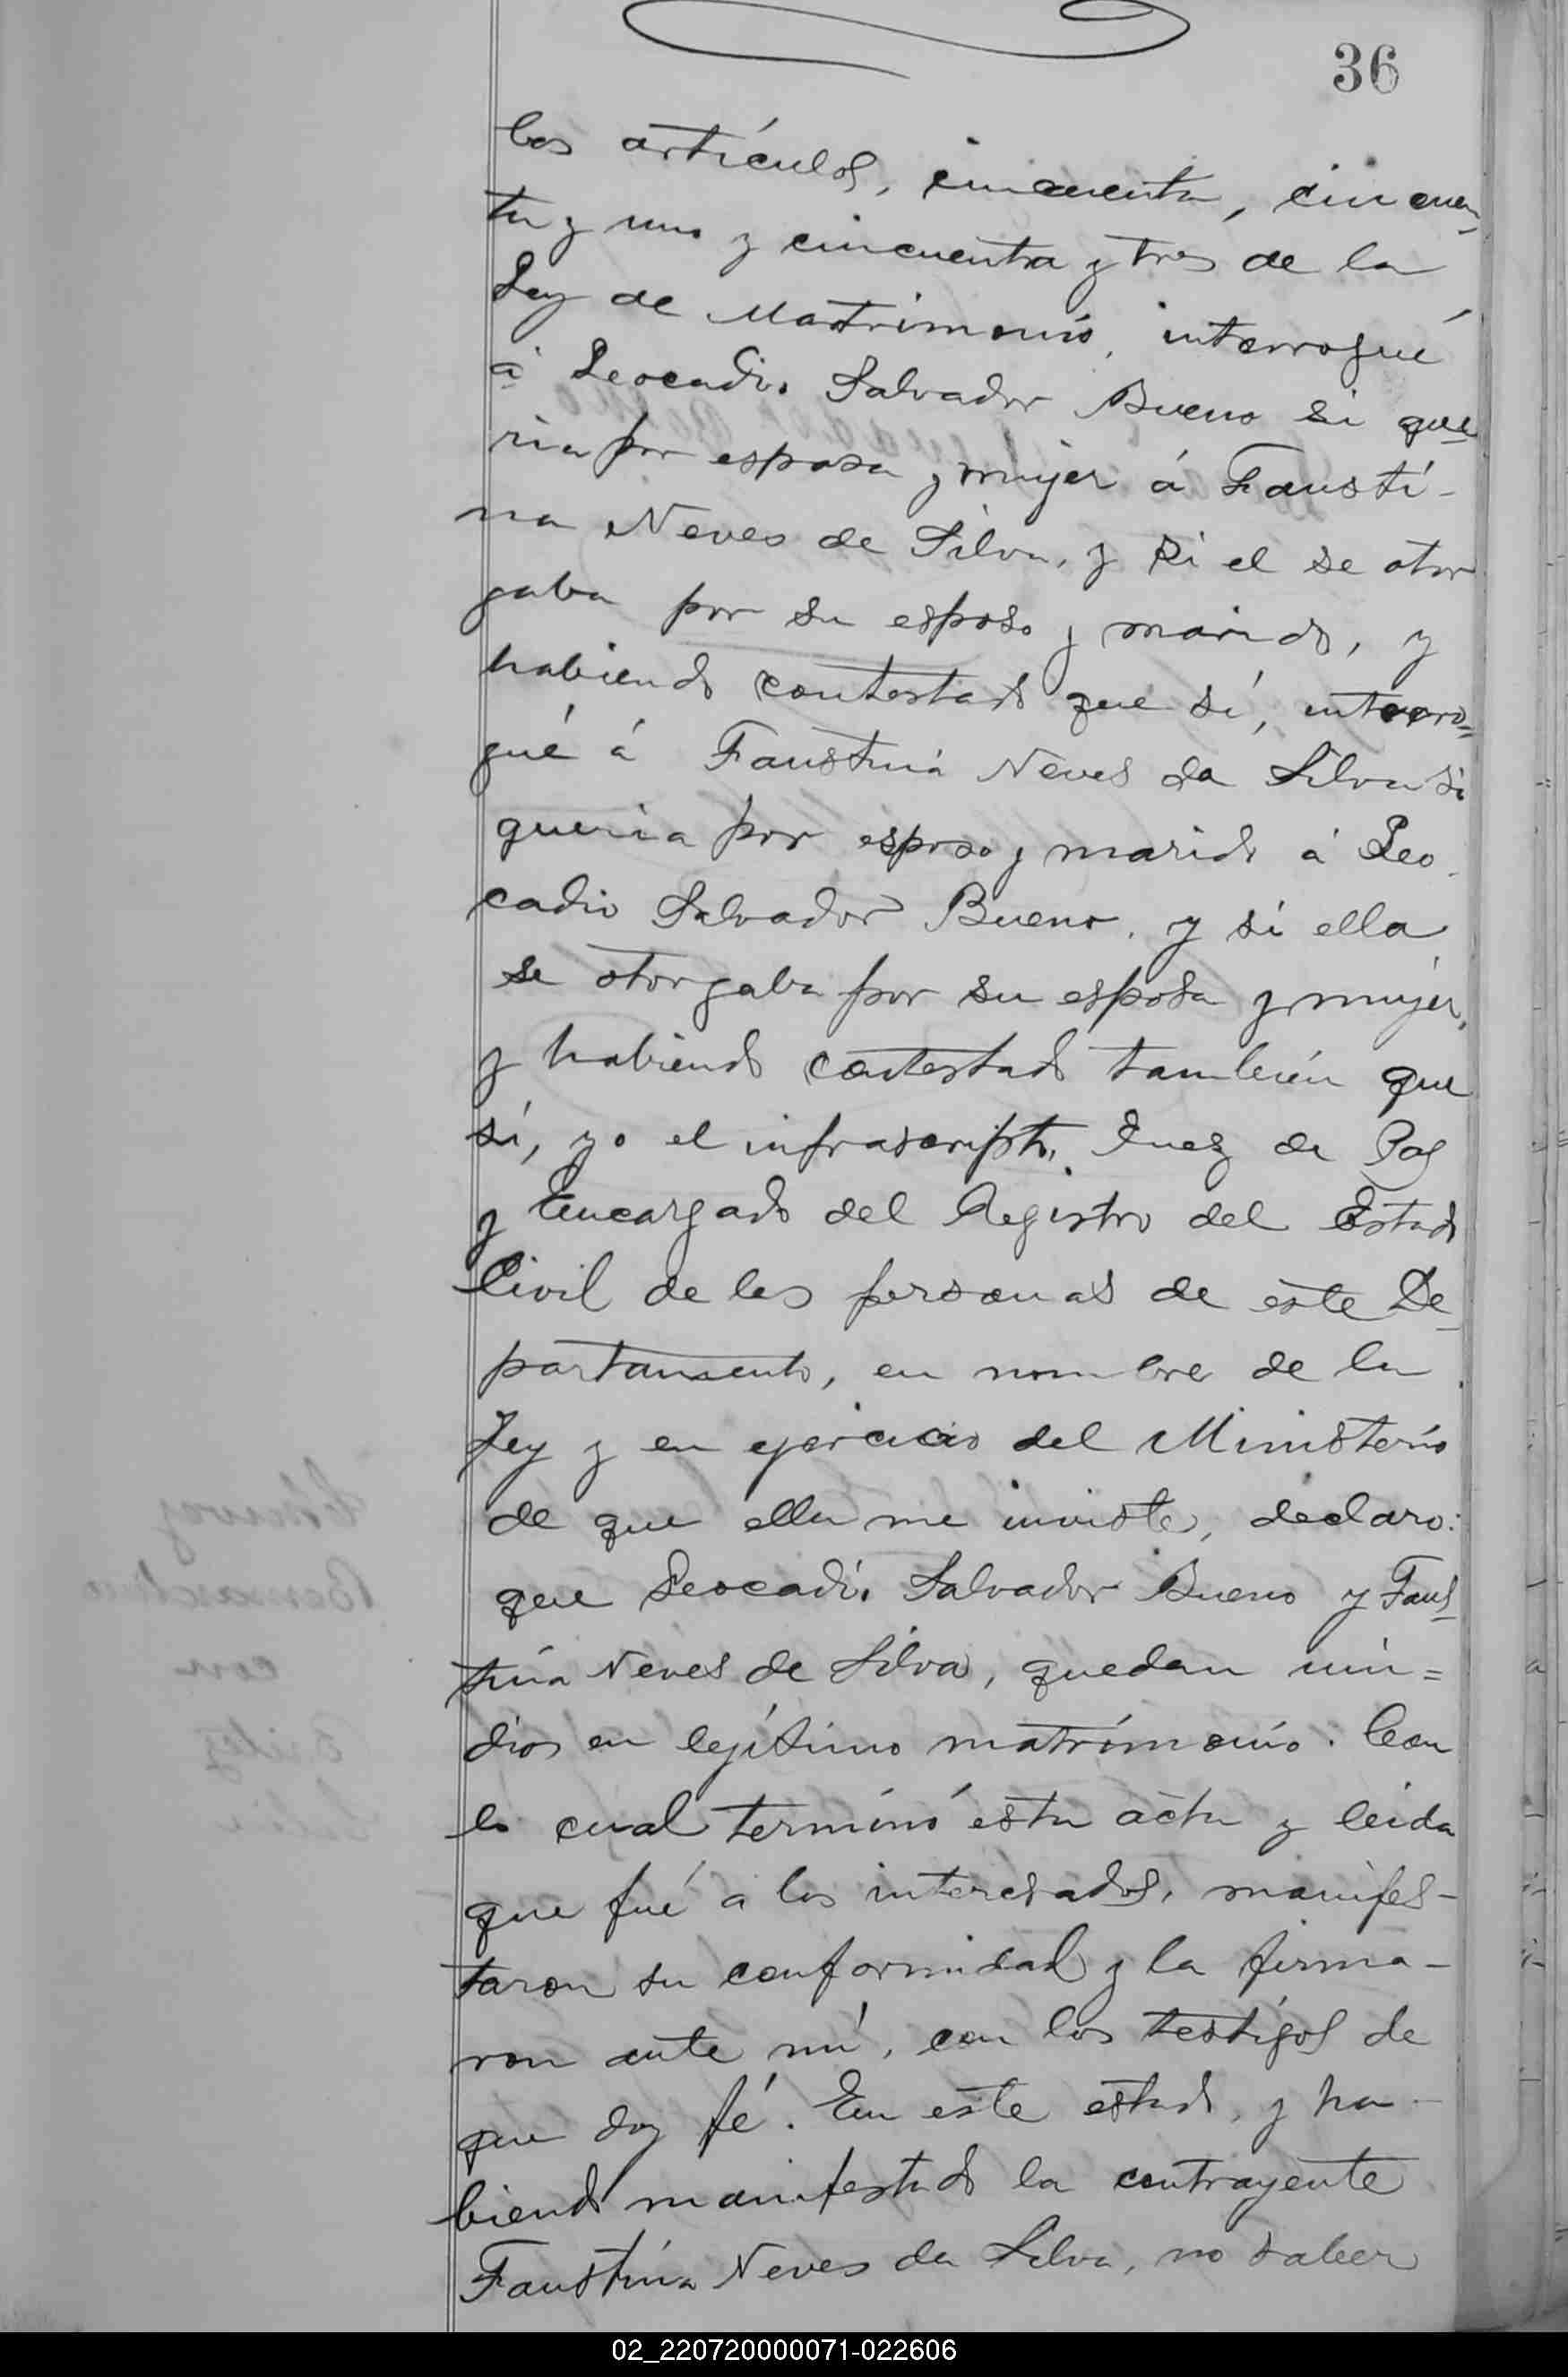 36
los artículos, cincuenta, cincuen-
ta y uno y cincuenta y tres de la
Ley de Matrimonio, interrogué
á Leocadio Salvador Bueno si que-
ria por esposa y mujer á Fausti-
na Neves de Silva, y si el se otor
gaba por su esposo y marido, y
habiendo contestado que sí, interro=
gué á Faustina Neves da Silva si
queria por esposo y marido á Leo
cadio Salvador Bueno, y si ella
se otorgaba por su esposa y mujer,
y habiendo contestado también que
sí, yo el infrascripto, Juez de Paz
y Encargado del Registro del Estado
Civil de las personas de este De-
partamento, en nombre de la
Ley y en ejercicio del Ministerio
de que ella me inviste, declaro:
que Leocadio Salvador Bueno y Faus-
tina Neves de Silva, quedan uni=
dos en legítimo matrimonio. Con
lo cual terminó esta acta y leida
que fué a los interesados, manifes-
taron su conformidad y la firma-
ron ante mí, con los testigos de
que doy fé. En este estado, y ha-
biendo manifestado la contrayente
Faustina Neves da Silva, no saber
02_220720000071-022606